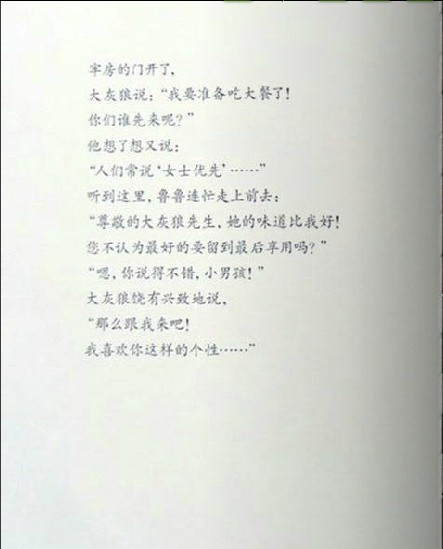 牢房的门开了，
大灰狼说：“我要准备吃大餐了！
你们谁先来呢？”
他想了想又说：
“人们常说‘女士优先’……”
听到这里，鲁鲁连忙走上前去：
“尊敬的大灰狼先生，她的味道比我好！
您不认为最好的要留到最后享用吗？”
“嗯，你说得不错，小男孩！”
大灰狼饶有兴致地说，
“那么跟我来吧！
我喜欢你这样的个性……”